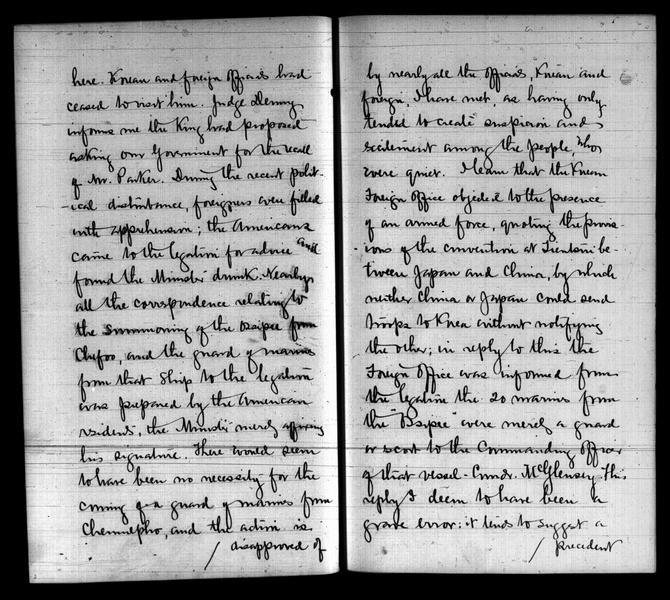 here. Korean and foreign officials had
ceased to visit him. Judge Denny
informs me the King had proposed
asking our Government for the recall
of Mr. Parker. During the recent polit-
-ical disturbance, foreigners were filled
with apprehension; the Americans
came to the legation for advice and
found the Minister drunk. Nearly
all the correspondence relating to
the summoning of the Ossipee from
Chefoo, and the guard of marines
from that ship to the legation
was prepared by the American
residents, the Minister merely affixing
his signature. There would seem
to have been no necessity for the
coming of a guard of marines from
Chemulpho, and the action is
/ disapproved of
by nearly all the officials, Korean and
foreign, I have met, as having only
tended to create suspicion and
excitement among the people, who
were quiet. I learn that the Korean
Foreign office objected to the presence
of an armed force, quoting the provis-
ions of the convention at Tientsin be-
tween Japan and China, by which
neither China or Japan could send
troops to Korea without notifying
the other; in reply to this the
Foreign Office was informed from
the legation the 20 marines from
the "Ossipee" were merely a guard
or escort to the Commanding Officer
of that vessel - Comdr. McGlensey. This
reply I deem to have been a
grave error: it tends to suggest a
/ precedent